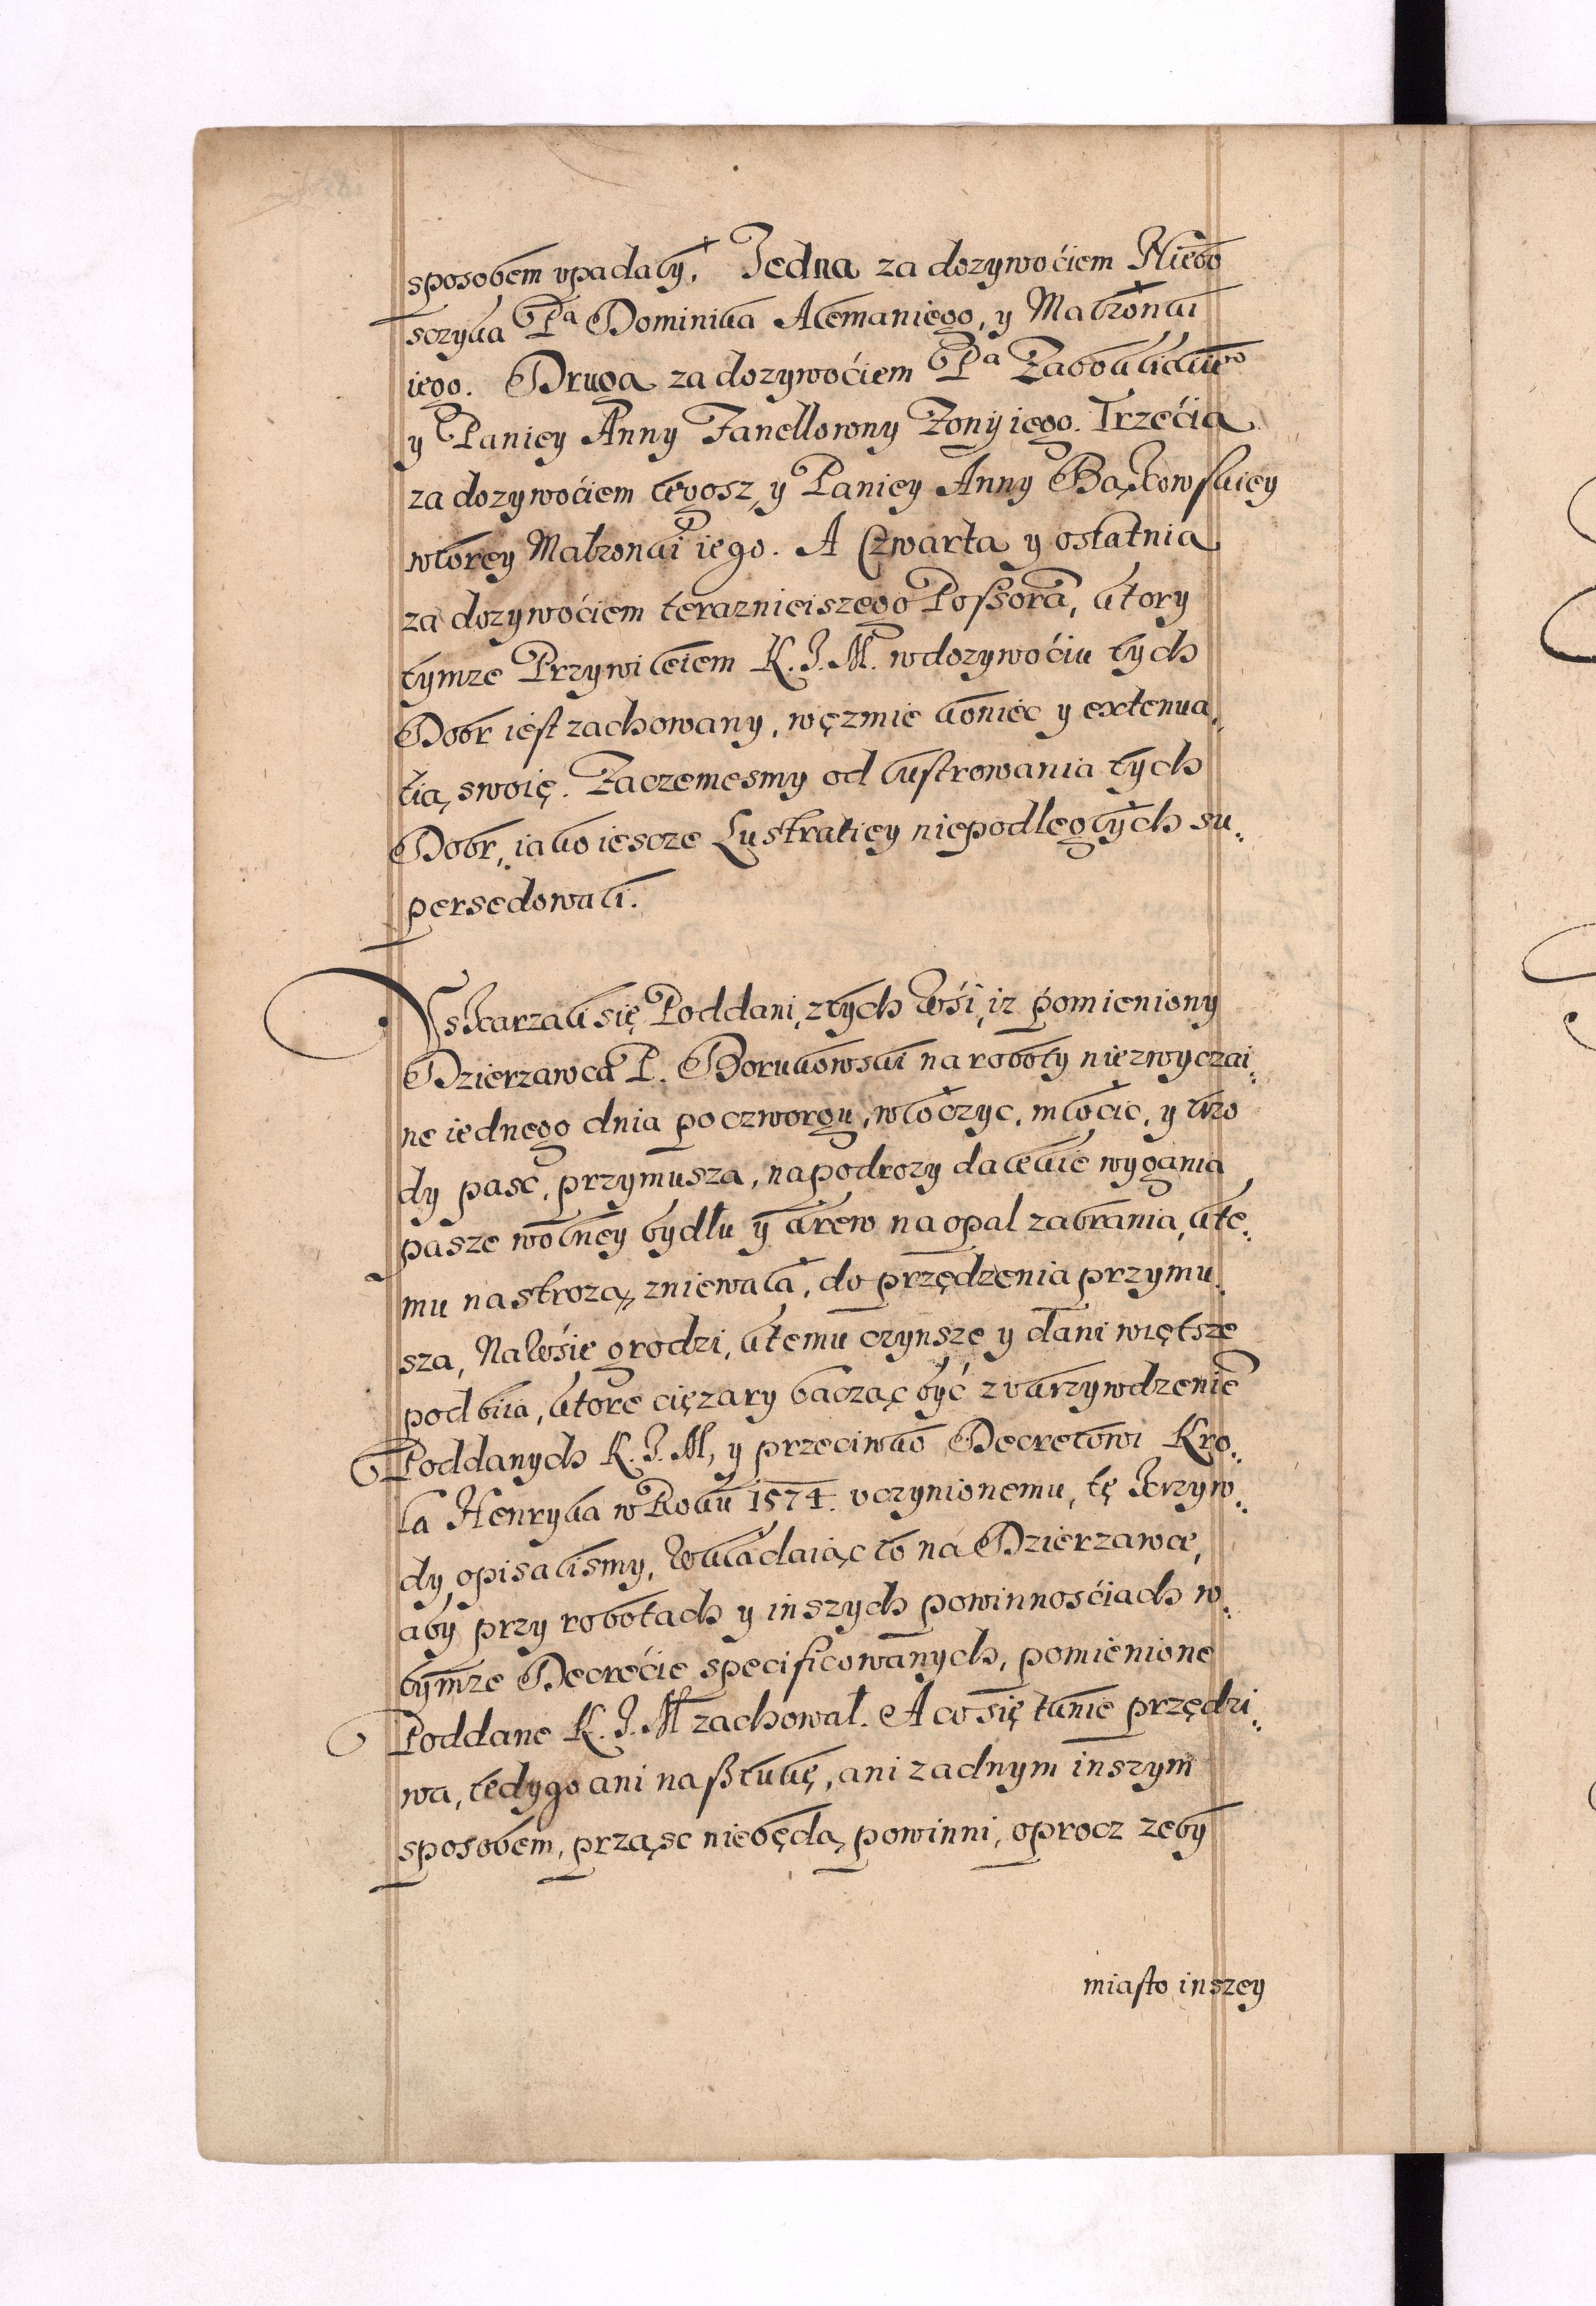 sposobem vpadały. Jedna za dozywoćiem Niebo
sczyka Pa Dominika Alemaniego, y Małzonki
iego. Druga za dozywoćiem Pa
y Paniey Anny Fanellowny Zony iego. Trzećia
za dozywoćiem tegosz, y Paniey Anny Bąkowskiey
wtorey Małzonki iego. A Czwarta y ostatnia
za dozywoćiem teraznieiszego Possora, ktory
tymze Przywileiem K. J. M. wdozywoćiu tych
Dobr iest zachowany, węzmie koniec y extenua,
tią swoię. Zaczemesmy od lustrowania tych
Dobr, iako iescze Lustratiey niepodległych su,
persedowali.
Vskarzali się Poddani z tych Wśi, iz pomieniony
Dzierzawca P. Borukowski na roboty niezwyczai,
ne iednego dnia poczworgu, włoczyc, młocic, y trzo
dy paść, przymusza, na podrozy dalekie wygania
pasze wolney bydłu y drew na opał zabrania, kte,
mu na strozą zniewala, do przędzenia przymu,
sza, Na Wsie grodzi, ktemu czynsze y dani większe
podbiia, ktore cięzary bacząc być z vkrzywdzenie
Poddanych K. J. M, y przeciwko Decretowi Kro,
la Henryka w Roku 1574. vczynionemu, tę krzyw,
dy opisalismy, Wkładaiąc to na Dzierzawce,
aby przy robotach y inszych powinnośćiach w,
tymze Decrećie specificowanych, pomienione
Poddane K. J. M zachował. A co się tknie przędzi,
wa, tedy go ani na sztukę, ani zadnym inszym
sposobem, prząsc niebędą powinni, oprocz zeby
miasto inszey